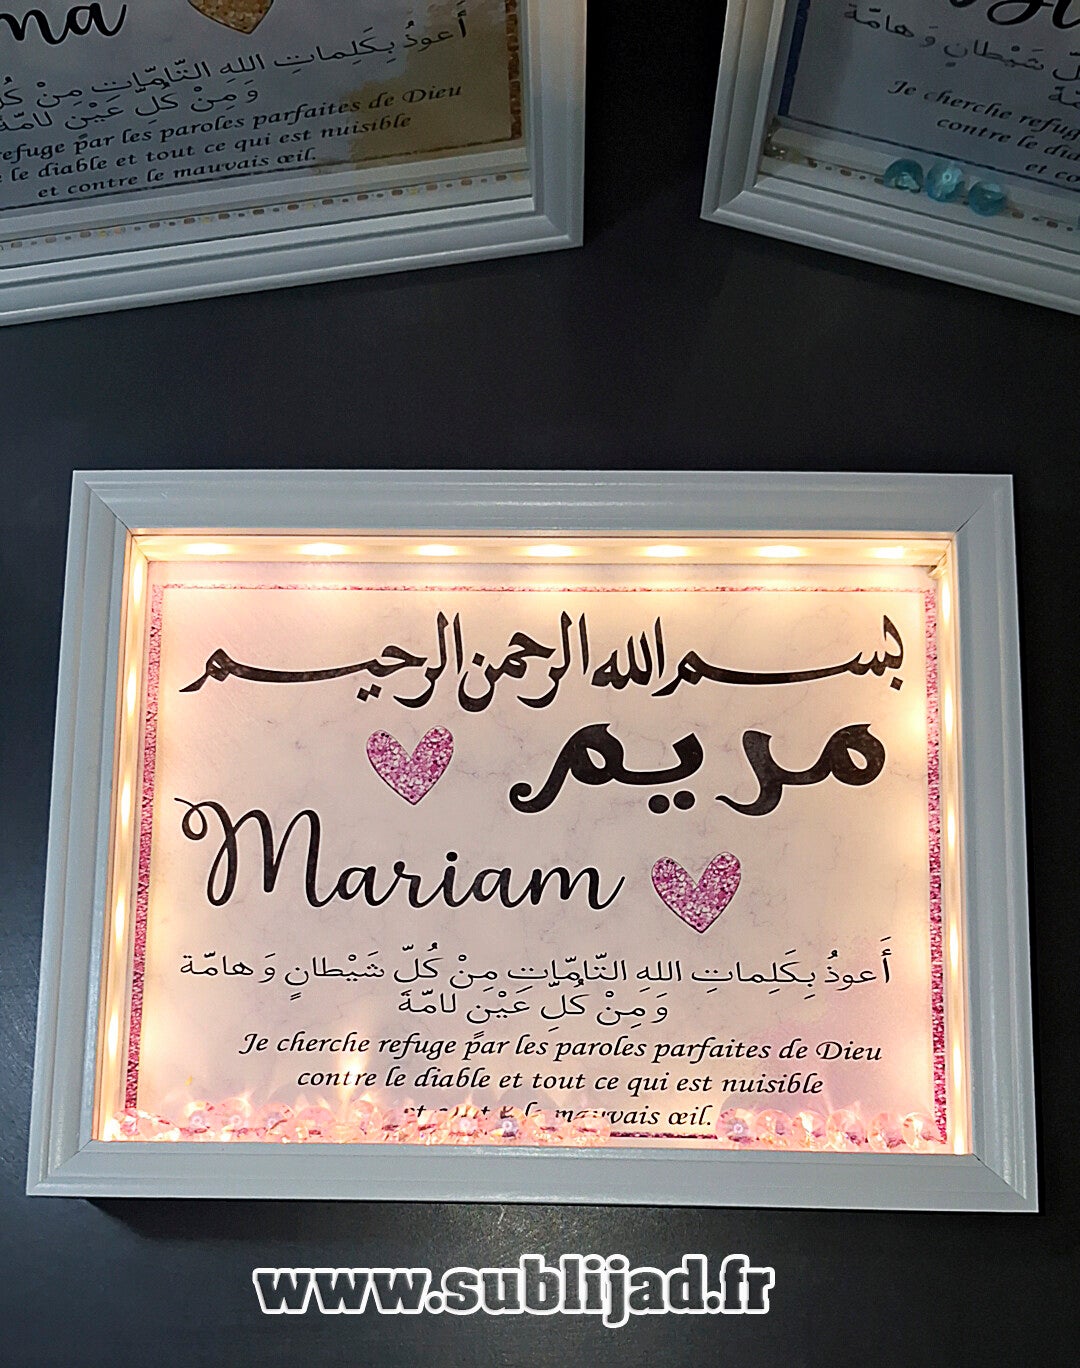 na
أَعوذُ بِكَلِماتِ اللهِ التّامّاتِ مِنْ كُلّ
وَ مِنْ كُلِّ عَيْنٍ لامّة
refuge par les paroles parfaites de Dieu
le diable et tout ce qui est nuisible
et contre le mauvais œil.
شَيْطانٍ وَ هامّة
Je cherche refuge
contre le dia
et co
بسم الله الرحمن الرحيم
مريم
Mariam
أَعوذُ بِكَلِماتِ اللهِ التّامّاتِ مِنْ كُلّ شَيْطانٍ وَ هامّة
وَ مِنْ كُلِّ عَيْنٍ لامّة
Je cherche refuge par les paroles parfaites de Dieu
contre le diable et tout ce qui est nuisible
et contre le mauvais œil.
www.sublijad.fr